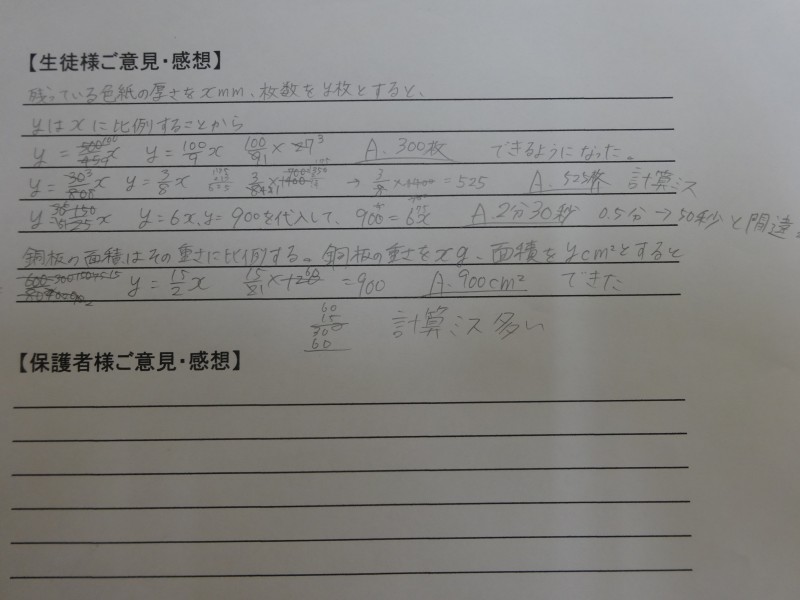 【生徒様ご意見・感想】
残っている色紙の厚さをxmm、枚数をy枚とすると、
yはxに比例することから
y = x y = 100/9 x 100/9 × 27 A. 300枚 できるようになった。
y = x y = 3/8 x → 3/8 × 1400 = 525 A. 525 計算ミス
y x y = 6x, y = 900を代入して、900 = 6x A. 2分30秒 0.5分 → 50秒と間違
銅板の面積はその重さに比例する。銅板の重さをxg、面積をycm²とすると
y = 15/2 x 15/2 × 120 = 900 A. 900cm² できた
60
15
300
60
計算ミス多い
【保護者様ご意見・感想】